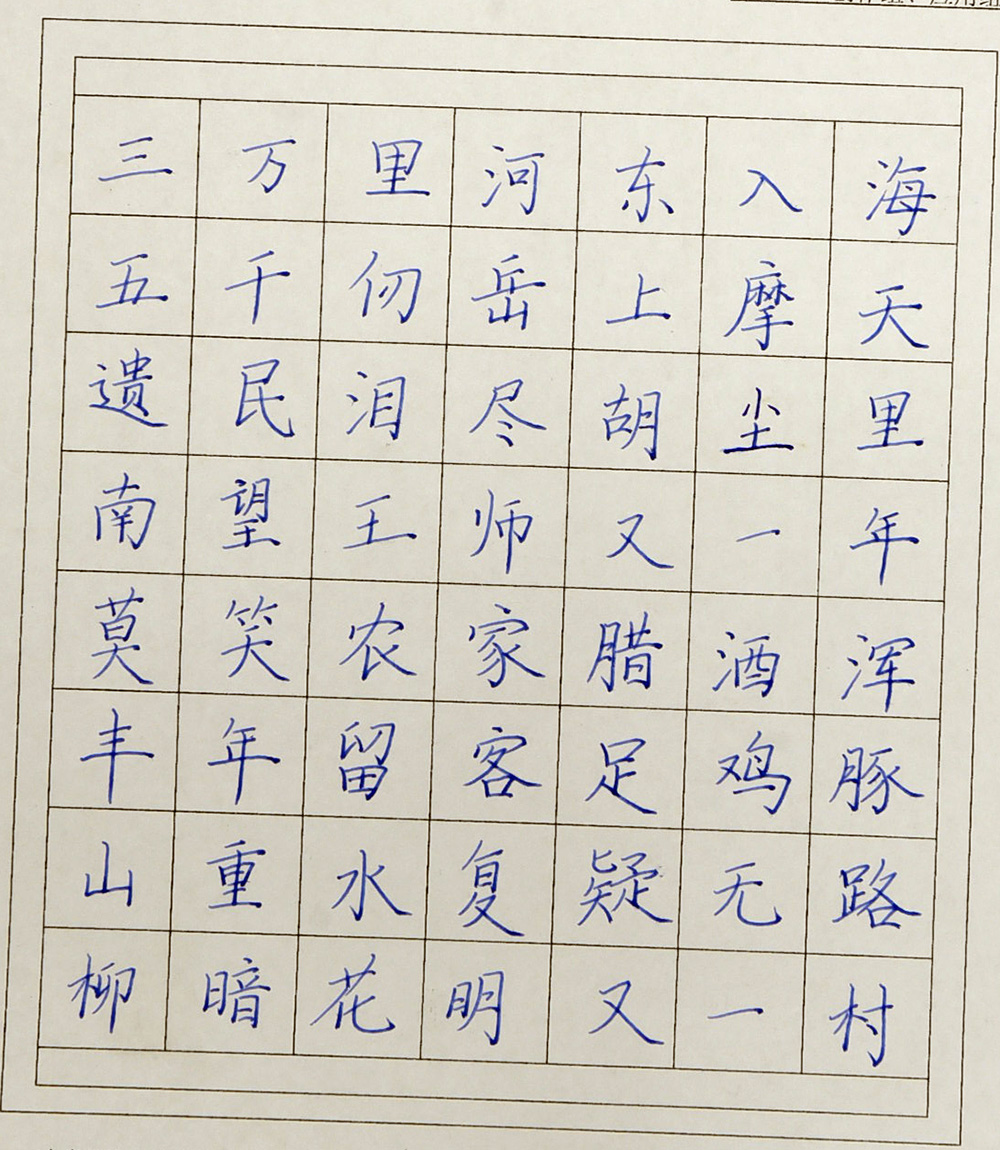 三万里河东入海
五千仞岳上摩天
遗民泪尽胡尘里
南望王师又一年
莫笑农家腊酒浑
丰年留客足鸡豚
山重水复疑无路
柳暗花明又一村